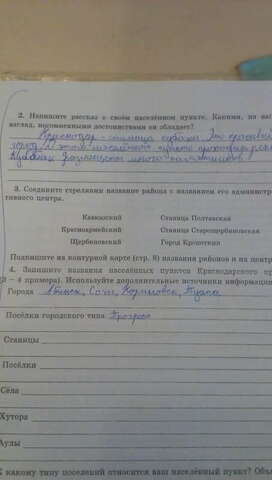 2. Напишите рассказ о своём населённом пункте. Какими, на ваш
взгляд, несомненными достоинствами он обладает?
Краснодар - столица Кубани. Это красивый
город. В этом населённом пункте
Кубани много
3. Соедините стрелками название района с названием его администра-
тивного центра.
Кавказский Станица Полтавская
Красноармейский Станица Старощербиновская
Щербиновский Город Кропоткин
Подпишите на контурной карте (стр. 8) названия районов и на центр
4. Запишите названия населённых пунктов Краснодарского кр
(3 – 4 примера). Используйте дополнительные источники информации
Города Абинск, Сочи, Кореновск, Туапсе
Посёлки городского типа
Станицы
Посёлки
Сёла
Хутора
Аулы
К какому типу поселений относится ваш населённый пункт? Объ